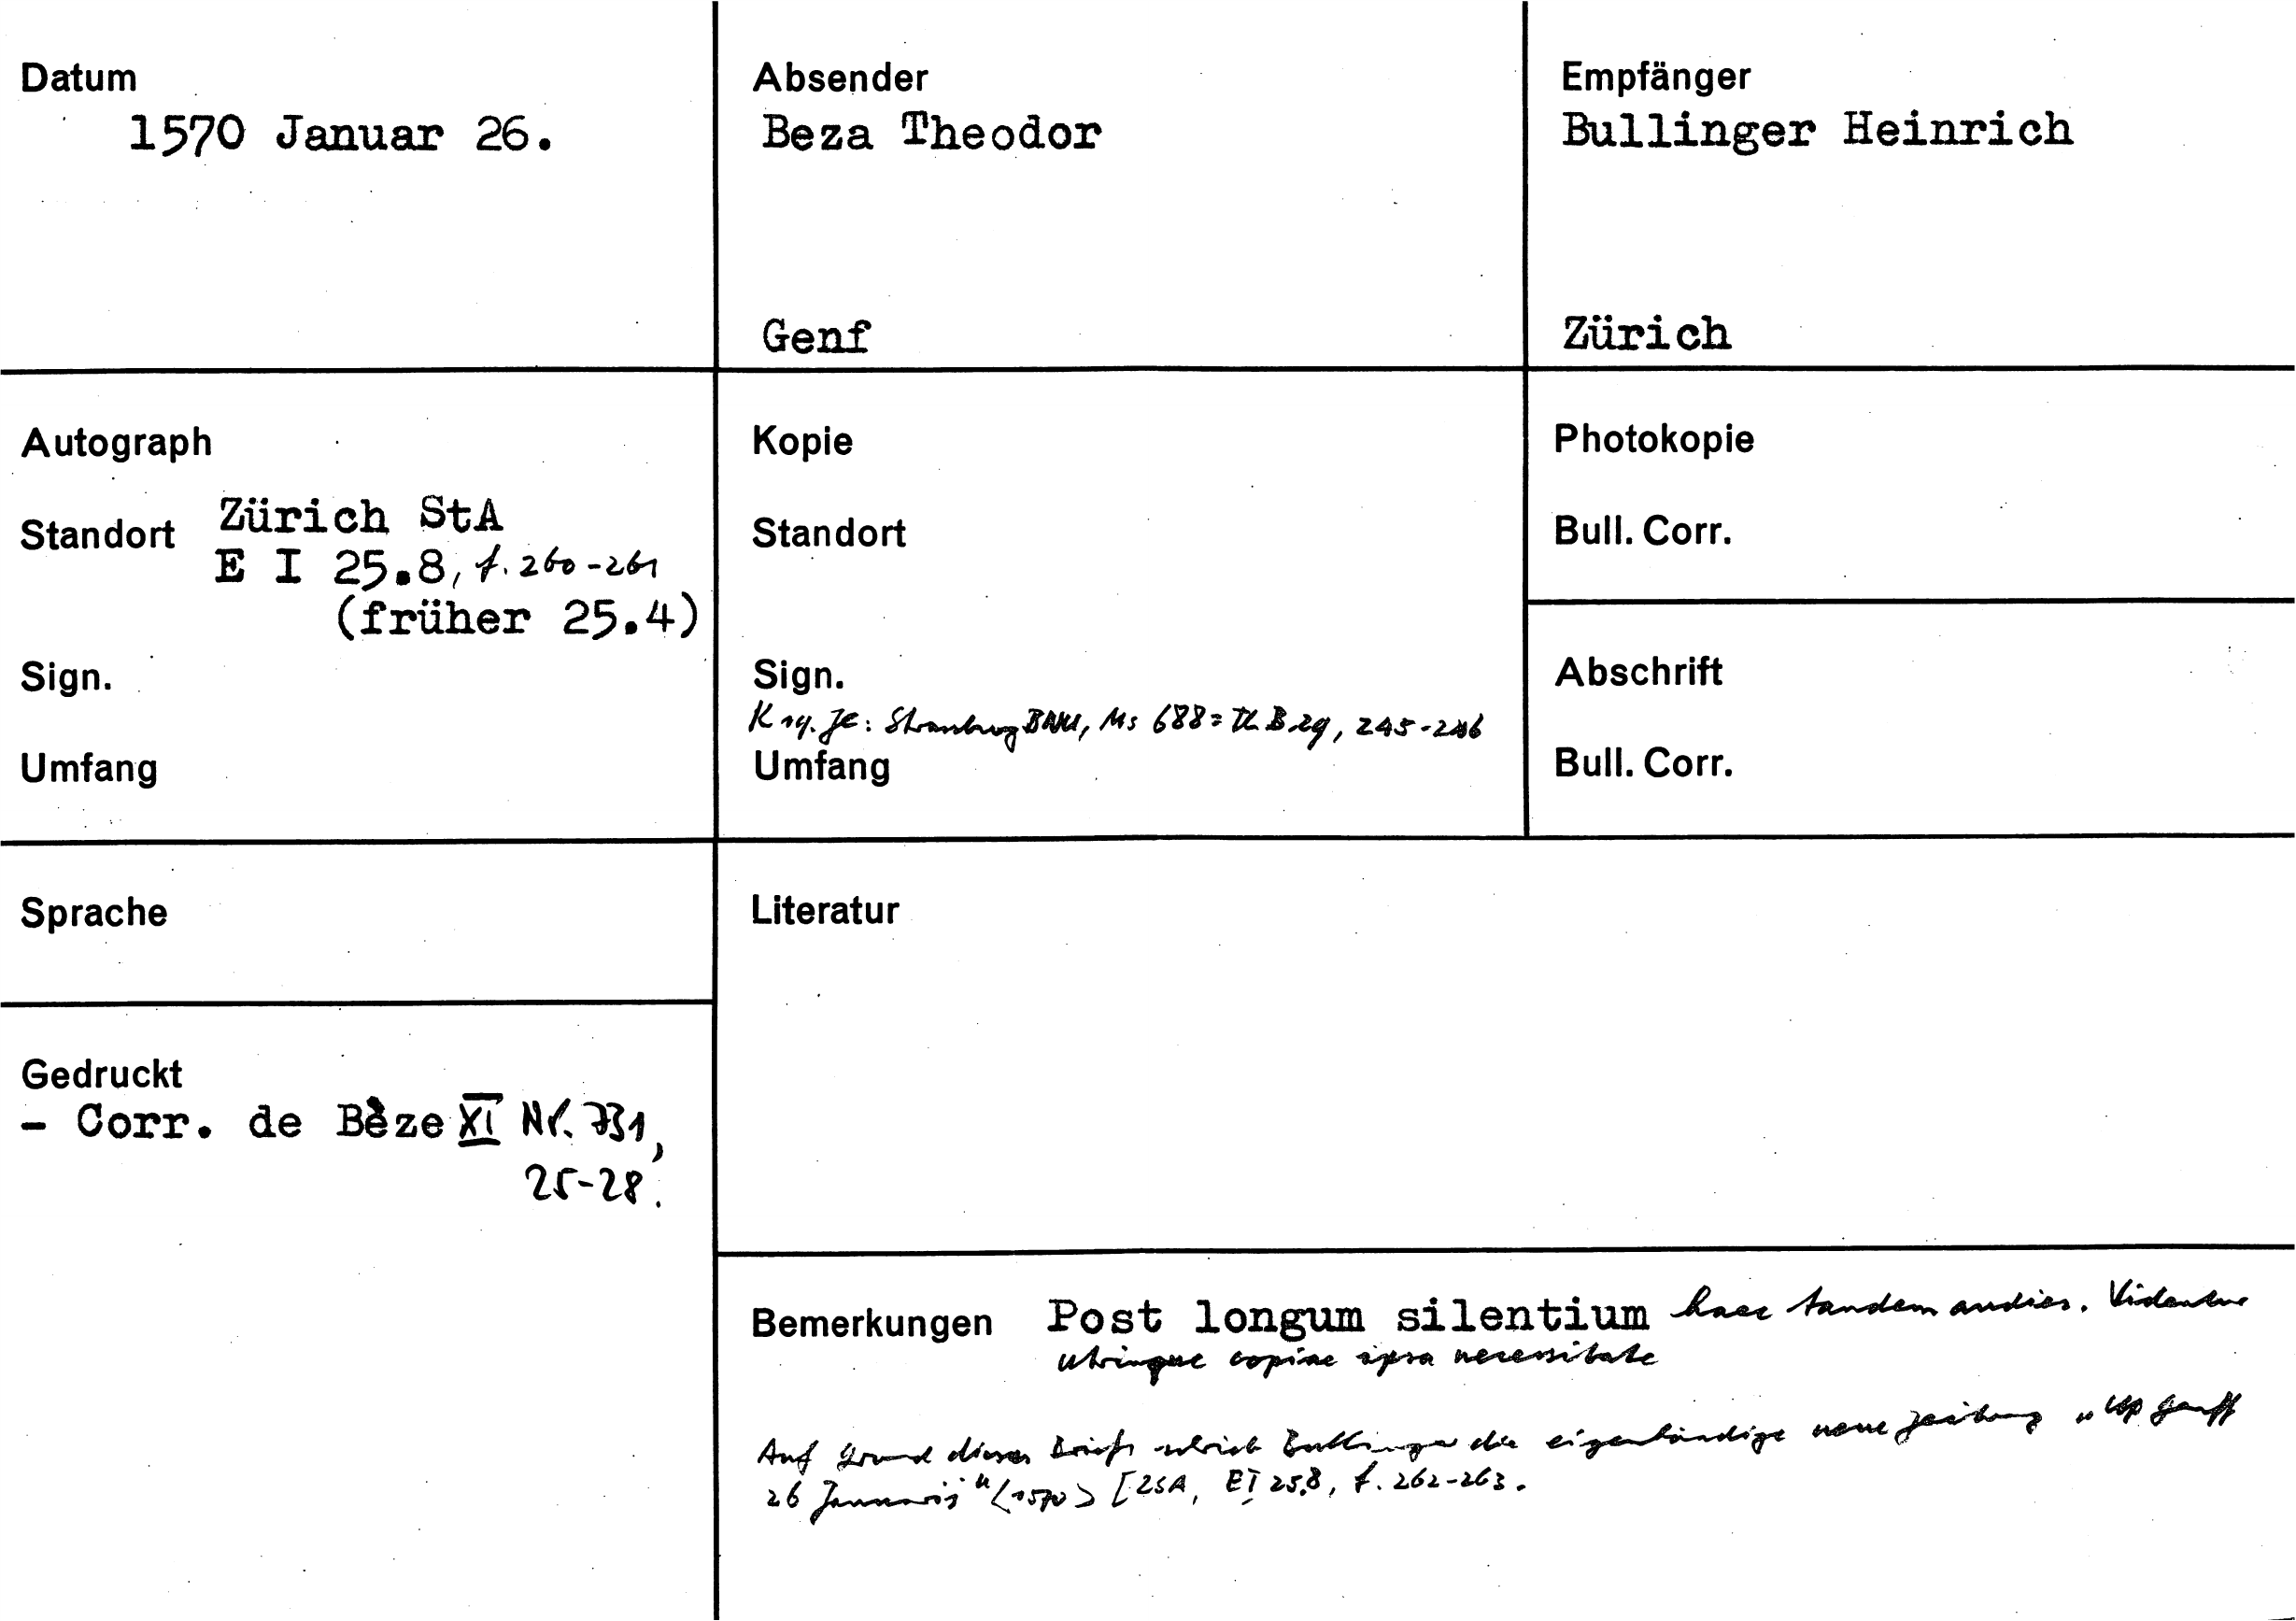 Datum
1570 Januar 26.
Absender
Beza Theodor
Genf
Empfänger
Bullinger Heinrich
Zürich
Autograph
Standort Zürich StA
E I 25.8, f. 260-261
(früher 25.4)
Sign.
Umfang
Kopie
Standort
Sign.
K 19. Jh: Strassburg BNU, Ms 688 = Th B 29, 245-246
Umfang
Photokopie
Bull. Corr.
Abschrift
Bull. Corr.
Sprache
Gedruckt
- Corr. de Bèze XI Nr. 731,
25-28.
Literatur
Bemerkungen Post longum silentium haec tandem audies. Videntur
utringue copiae ipsa necessitate
Auf Grund dieses Briefs schrieb Bullinger die eigenhändige neue Zeitung „Us Genff
26 Januarij" (1570) [ZSA, E I 25.8, f. 262-263.